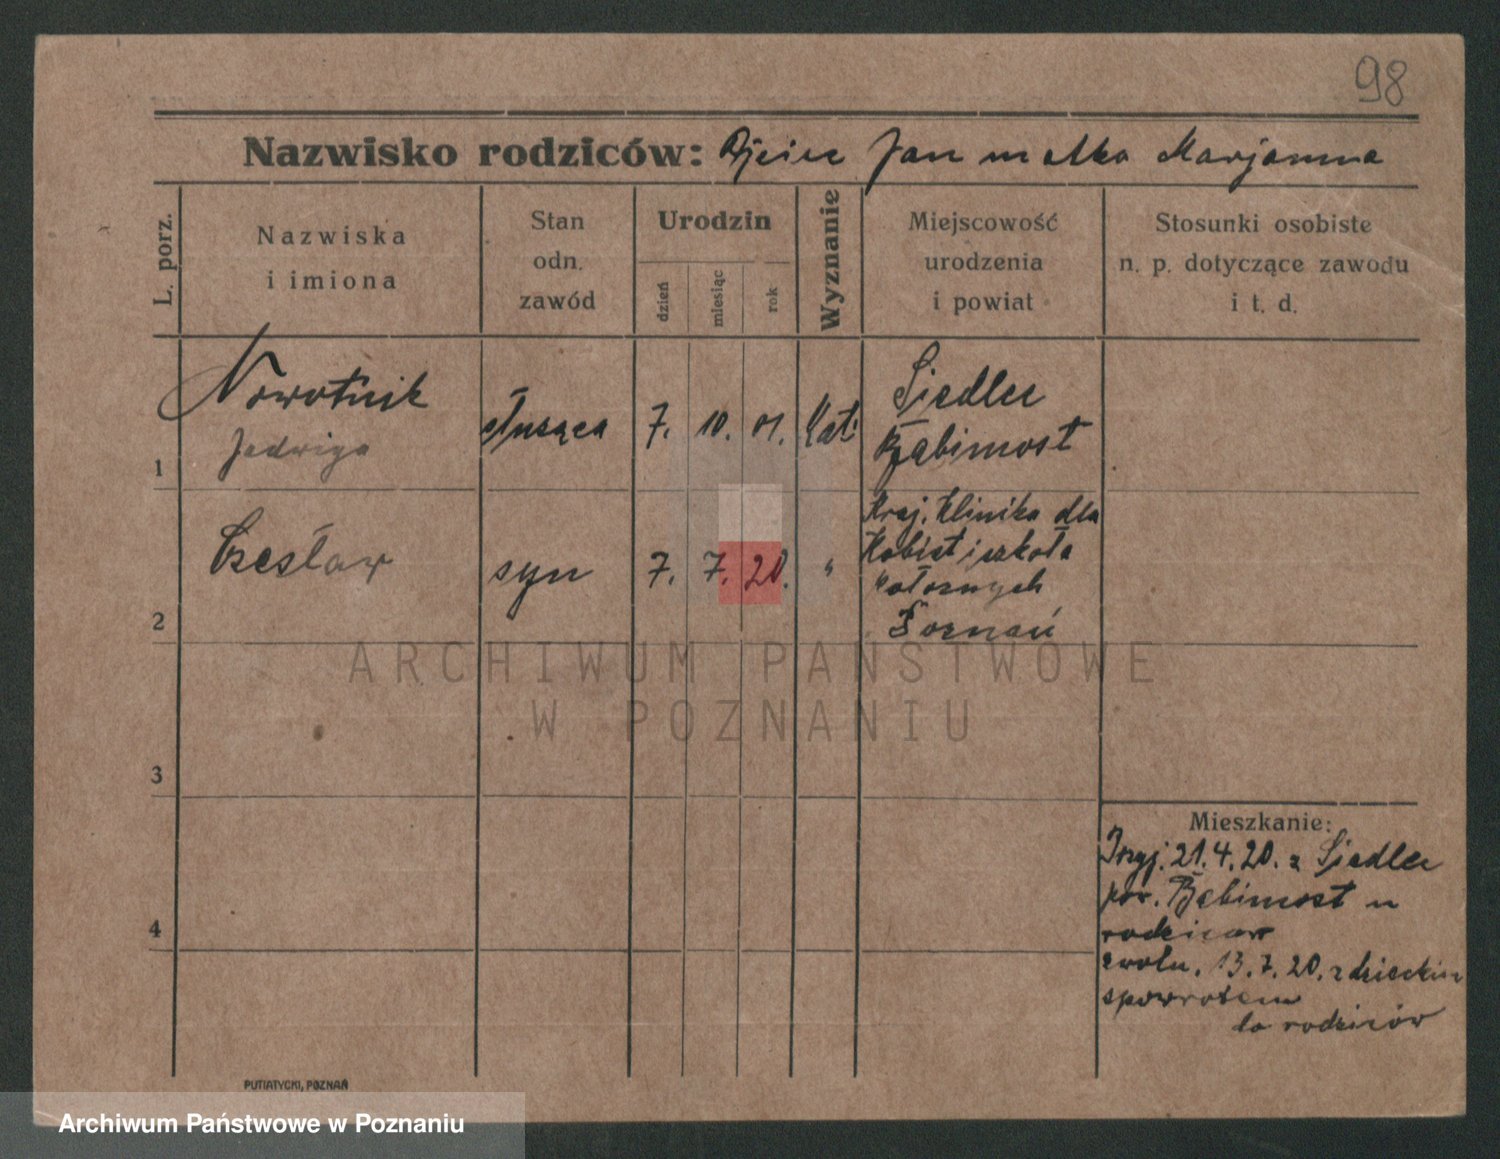 98
Nazwisko rodziców: Ojciec Jan matka Marjanna
L. porz.
Nazwiska
i imiona
Stan
odn.
zawód
Urodzin
dzień
miesiąc
rok
Wyznanie
Miejscowość
urodzenia
i powiat
Stosunki osobiste
n. p. dotyczące zawodu
i t. d.
1
Nowotnik
Jadwiga
służąca
7. 10. 01.
Kat.
Siedlec
Babimost
2
Czesław
syn
7. 7. 20.
"
Kraj. Klinika dla
Kobiet i szkoła
położnych
Poznań
3
4
Mieszkanie:
Przyj. 21.4.20. z Siedlec
pow. Babimost u
rodziców
zwoln. 13.7.20. z dzieckiem
spowrotem
do rodziców
PUTIATYCKI, POZNAŃ
ARCHIWUM PAŃSTWOWE
W POZNANIU
Archiwum Państwowe w Poznaniu